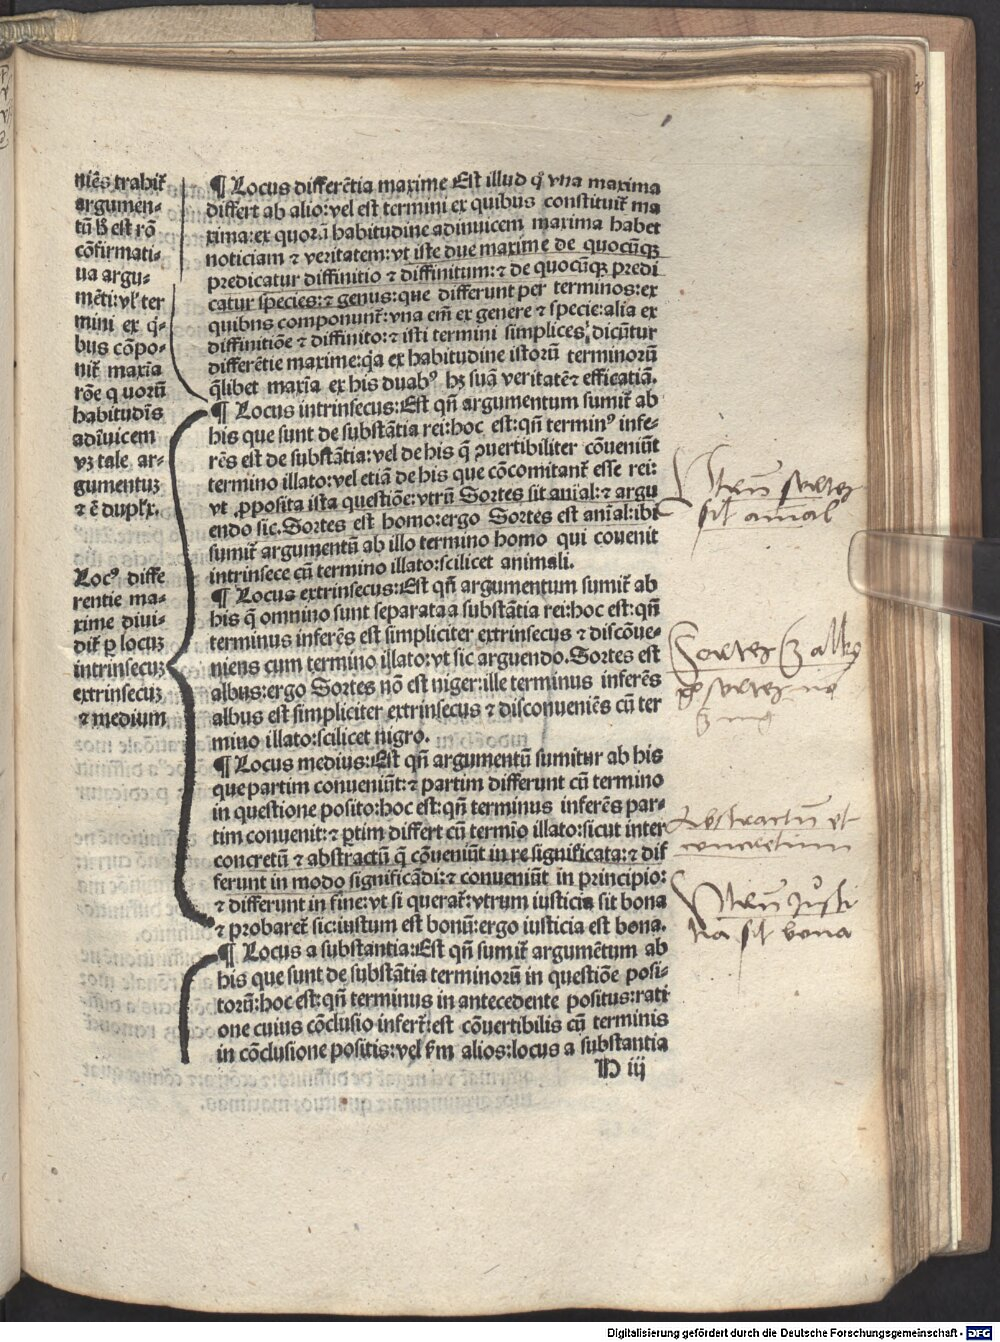 niēs trahit᷑
argumen-
tū ꝟ est rō
cōfirmati-
ua argu-
mēti: vl' ter
mini ex q̄-
bus cōpo-
nit᷑ maxīa
rōe q uorū
habitudīs
adīuicem
vꝫ tale ar-
gumentuꝫ
⁊ ē duplx.
Locꝰ diffe
rentie ma-
xime diui-
dit᷑ ꝑ locuꝫ
intrinsecuꝫ
extrinsecuꝫ
⁊ medium
¶ Locus differētia maxime Est illud qꝫ vna maxima
differt ab alio: vel est termini ex quibus constituit᷑ ma
xima: ex quorū habitudine adinuicem maxima habet
noticiam ⁊ veritatem: vt iste due maxime de quocūqꝫ
predicatur diffinitio ⁊ diffinitum: ⁊ de quocūqꝫ predi
catur species: ⁊ genus: que differunt per terminos: ex
quibns componunt᷑: vna em̄ ex genere ⁊ specie: alia ex
diffinitiōe ⁊ diffinito: ⁊ isti termini simplices dicūtur
differētie maxime: q̇a ex habitudine istorū terminorū
q̄libet maxīa ex his duabꝰ hꝫ suā veritatē ⁊ efficatiā.
¶ Locus intrinsecus: Est qn̄ argumentum sumit᷑ ab
his que sunt de substātia rei: hoc est: qn̄ terminꝰ infe-
rēs est de substātia: vel de his q̄ ꝓuertibiliter cōueniūt
termino illato: vel etiā de his que cōcomitant᷑ esse rei:
vt ꝓposita ista questiōe: vtrū Sortes sit aīal: ⁊ argu
endo sic. Sortes est homo: ergo Sortes est anīal: ibi
sumit᷑ argumentū ab illo termino homo qui couenit
intrinsece cū termino illato: scilicet animali.
¶ Locus extrinsecus: Est qn̄ argumentum sumit᷑ ab
his q̄ omnino sunt separata a substātia rei: hoc est: qn̄
terminus inferēs est simpliciter extrinsecus ⁊ discōue-
niens cum termino illato: vt sic arguendo. Sortes est
albus: ergo Sortes nō est niger: ille terminus inferēs
albus est simpliciter extrinsecus ⁊ disconueniēs cū ter
mino illato: scilicet nigro.
¶ Locus medius: Est qn̄ argumentū sumitur ab his
que partim conueniūt: ⁊ partim differunt cū termino
in questione posito: hoc est: qn̄ terminus inferēs par-
tim conuenit: ⁊ ꝑtim differt cū termīo illato: sicut inter
concretū ⁊ abstractū q̄ cōueniūt in re significata: ⁊ dif
ferunt in modo significādi: ⁊ conueniūt in principio:
⁊ differunt in fine: vt si querat᷑: vtrum iusticia sit bona
⁊ probaret᷑ sic: iustum est bonū: ergo iusticia est bona.
¶ Locus a substantia: Est qn̄ sumit᷑ argumētum ab
his que sunt de substātia terminorū in questiōe posi-
torū: hoc est: qn̄ terminus in antecedente positus: rati
one cuius cōclusio infert᷑: est cōuertibilis cū terminis
in cōclusione positis: vel ẜm alios: locus a substantia
D iij
Utrū sortes
sit aīal
Sortes ē albꝰ
g° sortes nō
ē nig
Abstractū et
concretum
Utrū iusti
tia sit bona
Digitalisierung gefördert durch die Deutsche Forschungsgemeinschaft - DFG